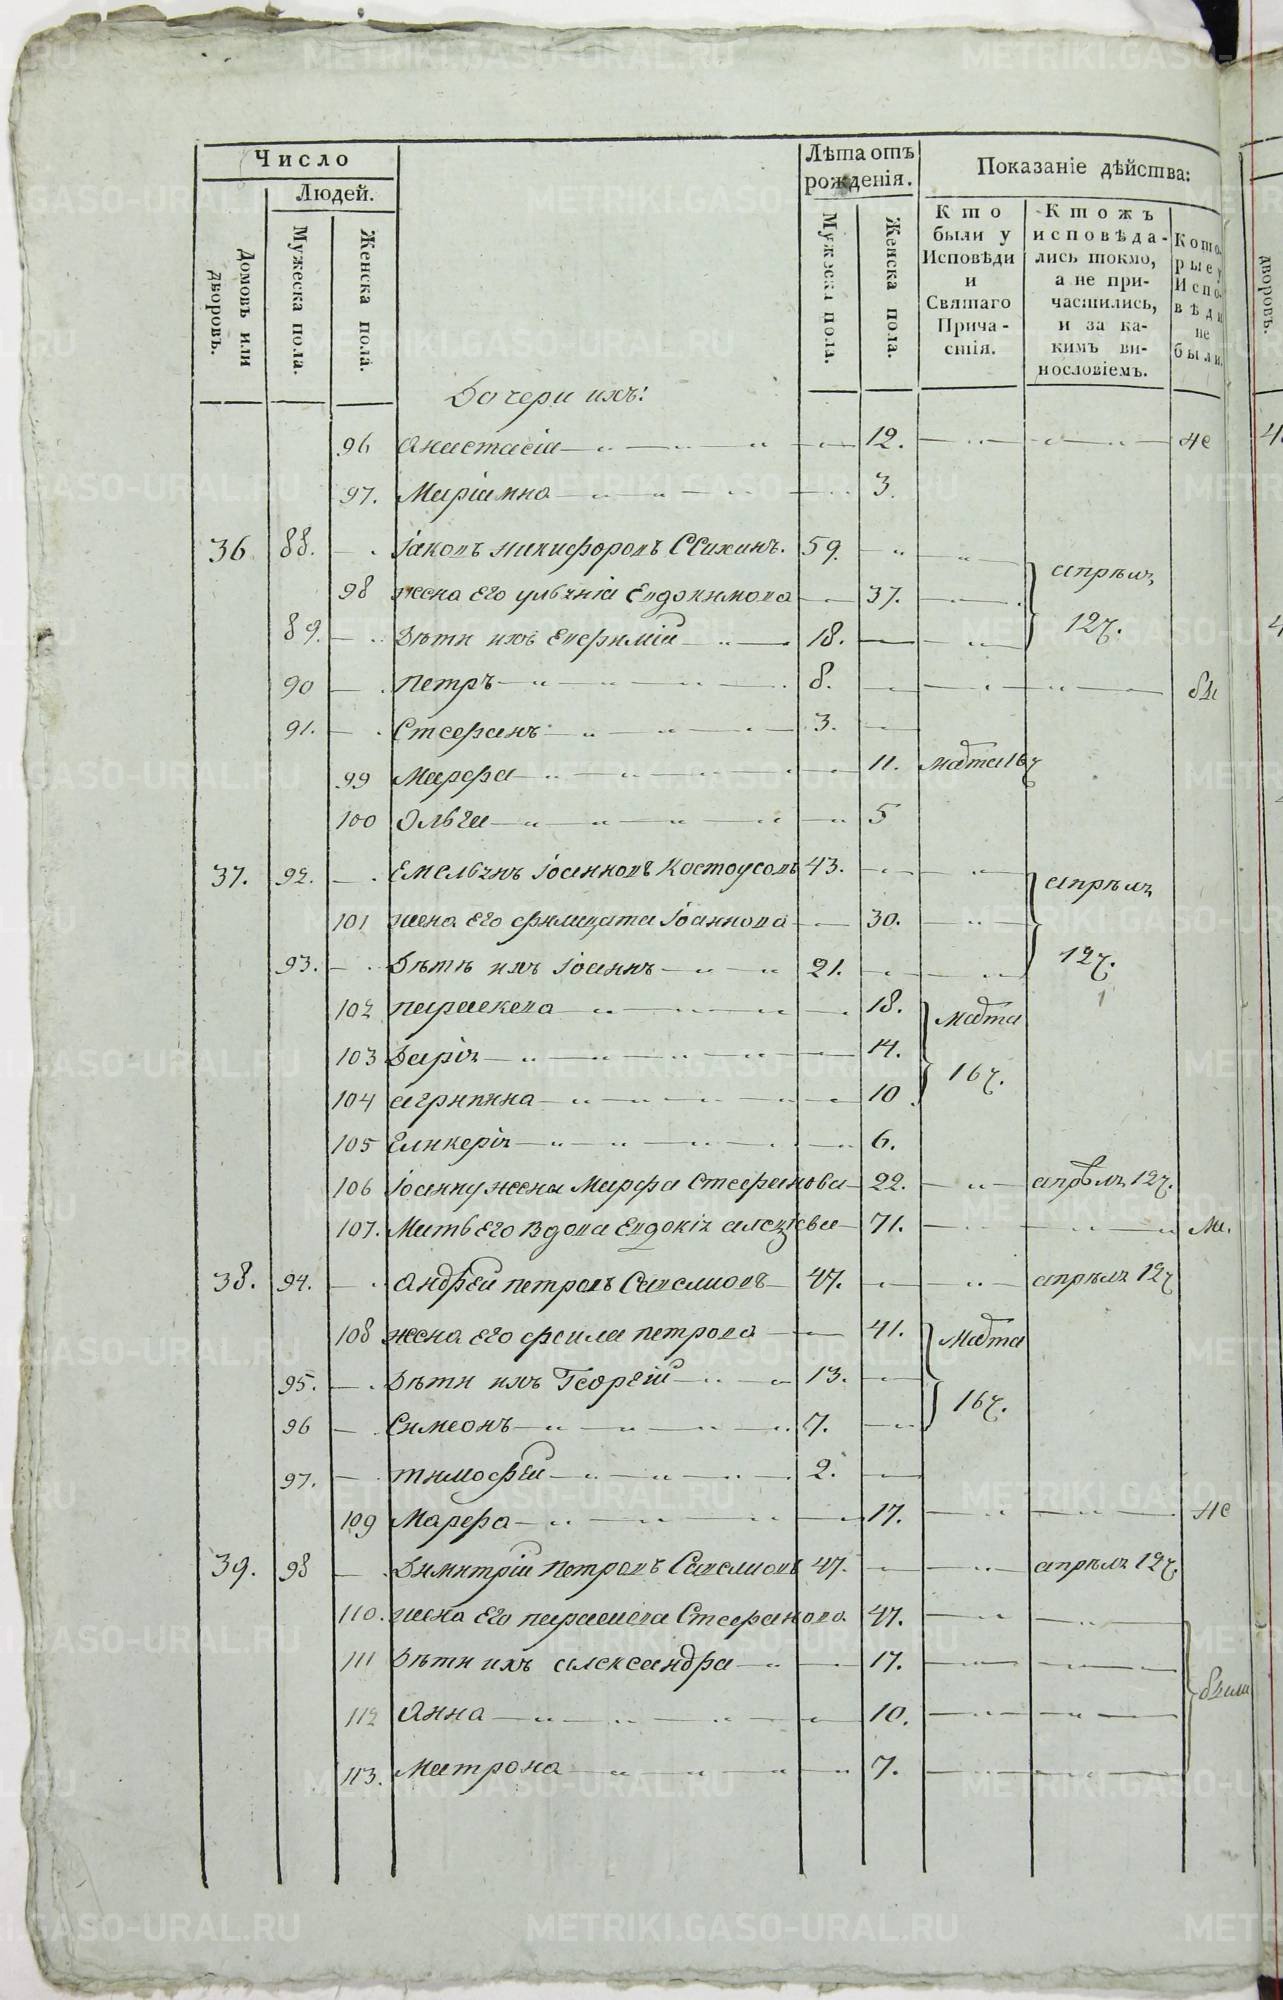 Число
Людей.
Домовъ или дворовъ.
Мужеска пола.
Женска пола.
Лѣта отъ рожденія.
Мужеска пола.
Женска пола.
Показаніе дѣйства:
Кто были у Исповѣди и Святаго Причастія.
Ктожъ исповѣдались токмо, а не причастились, и за какимъ винословіемъ.
Которые у Исповѣди не были.
дворовъ.
Дочери ихъ:
96 Анастасіа 12. не
97. Маріамна 3.
36 88. Іаковъ Никифоровъ 59.
98 жена его Евдокимова 37. апрѣля
89. Дѣти ихъ Евфимій 18. 12ч.
90 Петръ 8.
91. Стефанъ 3.
99 Марфа 11. марта 16ч
100 Ольга 5
37. 92. Емельянъ Іоанновъ Костоусовъ 43. апрѣля
101 жена его Филицата Іоаннова 30.
93. Дѣти ихъ Іоаннъ 21. 12ч.
102 Параскева 18. марта
103 Дарія 14.
104 Агрипина 10 16ч.
105 Гликерія 6.
106 Іоанну жена Марфа Стефанова 22. апрѣля 12ч.
107. Мать его вдова Евдокія 71.
38. 94. Андрей Петровъ 47. апрѣля 12ч
108 жена его Феила Петрова 41. марта
95. Дѣти ихъ Георгій 13.
96 Симеонъ 7. 16ч.
97. Тимофей 2.
109 Марфа 17. не
39. 98 Димитрій Петровъ 47. апрѣля 12ч.
110. жена его Параскева Стефанова 47.
111 Дѣти ихъ Александра 17.
112 Анна 10. были
113. Матрона 7.
METRIKI.GASO-URAL.RU